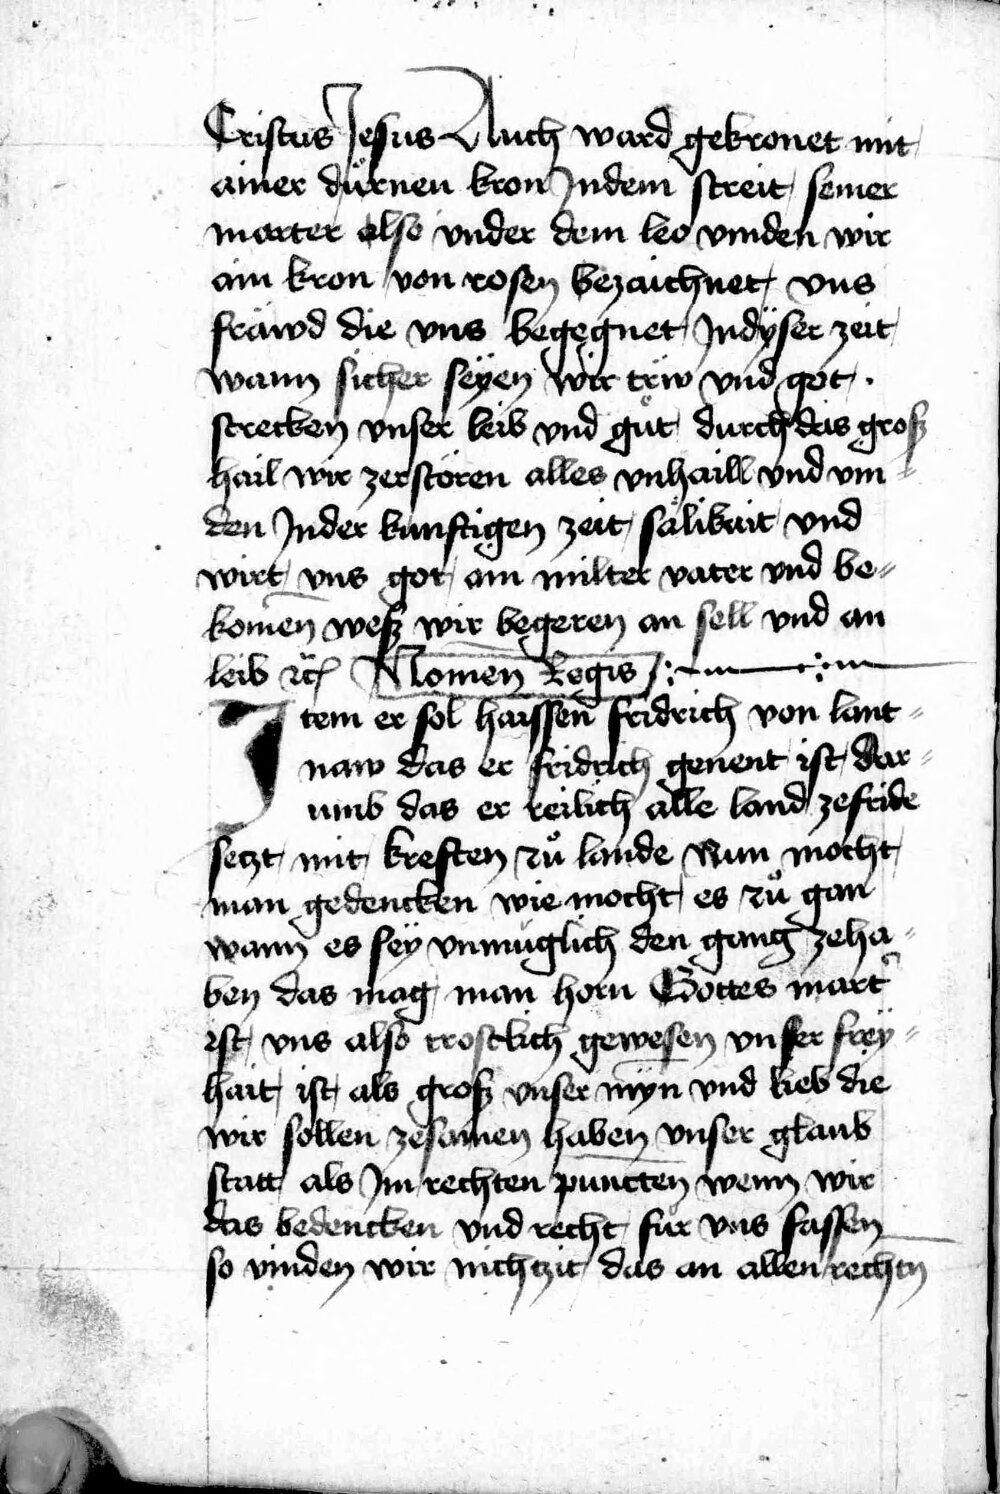 Cristus Jesus Auch ward gekronet mit
ainer dürnen kron Jndem streit seiner
marter also vnder dem leo vinden wir
ain kron von rosen bezaichnet vns
fräwd die vns begegnet Jndyser zeit
wann sicher seyen wir trüw vnd got .
strecken vnser leib vnd guͦt durch das groß
hail wir zerstören alles vnhaill vnd vin
den Jnder kunftigen zeit sälikait vnd
wirt vns got ain milter vater vnd be=
komen weß wir begeren an sell vnd an
leib etc Nomen Regis
Jtem er sol haissen fridrich von lant=
naw das er fridrich genent ist dar=
umb das er reilich alle land zefride
setzt mit kreften zuͦ lande Nun mocht
man gedencken wie mocht es zuͦ gan
wann es sey vnmüglich den gang zeha=
ben das mag man horn Gottes mart
ist vns also trostlich gewesen vnser frey=
hait ist als groß vnser myn vnd lieb die
wir sollen zesamen haben vnser glaub
statt als Jm rechten puncten wenn wir
das bedencken vnd recht für vns fassen
so vinden wir nichtzit das an allen rechtn